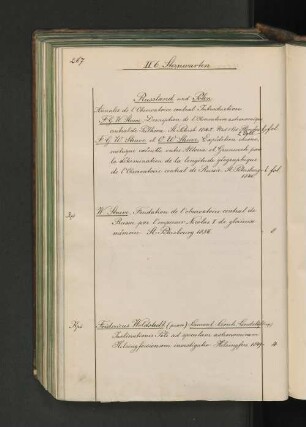 267
II 6. Sternwarten
Russland und Polen
Annales de l'Observatoire central. Introduction
F. G. W. Struve, Description de l'Observatoire astronomique
central de Poulkova. St. Petersb. 1845.
F. G. W. Struve et O. W. Struve, Expédition chronométrique
exécutée entre Altona et Greenwich pour
la détermination de la longitude géographique
de l'Observatoire central de Russie. St. Petersbourg fol
1846
W. Struve, Fondation de l'observatoire central de
Russie par l'empereur Nicolas I de glorieuse
mémoire St. Petersbourg 1856
Fridericus Woldstedt (praes)
Inclinationis Poli ad quantum astronomicum
Helsingforsianum investigatio